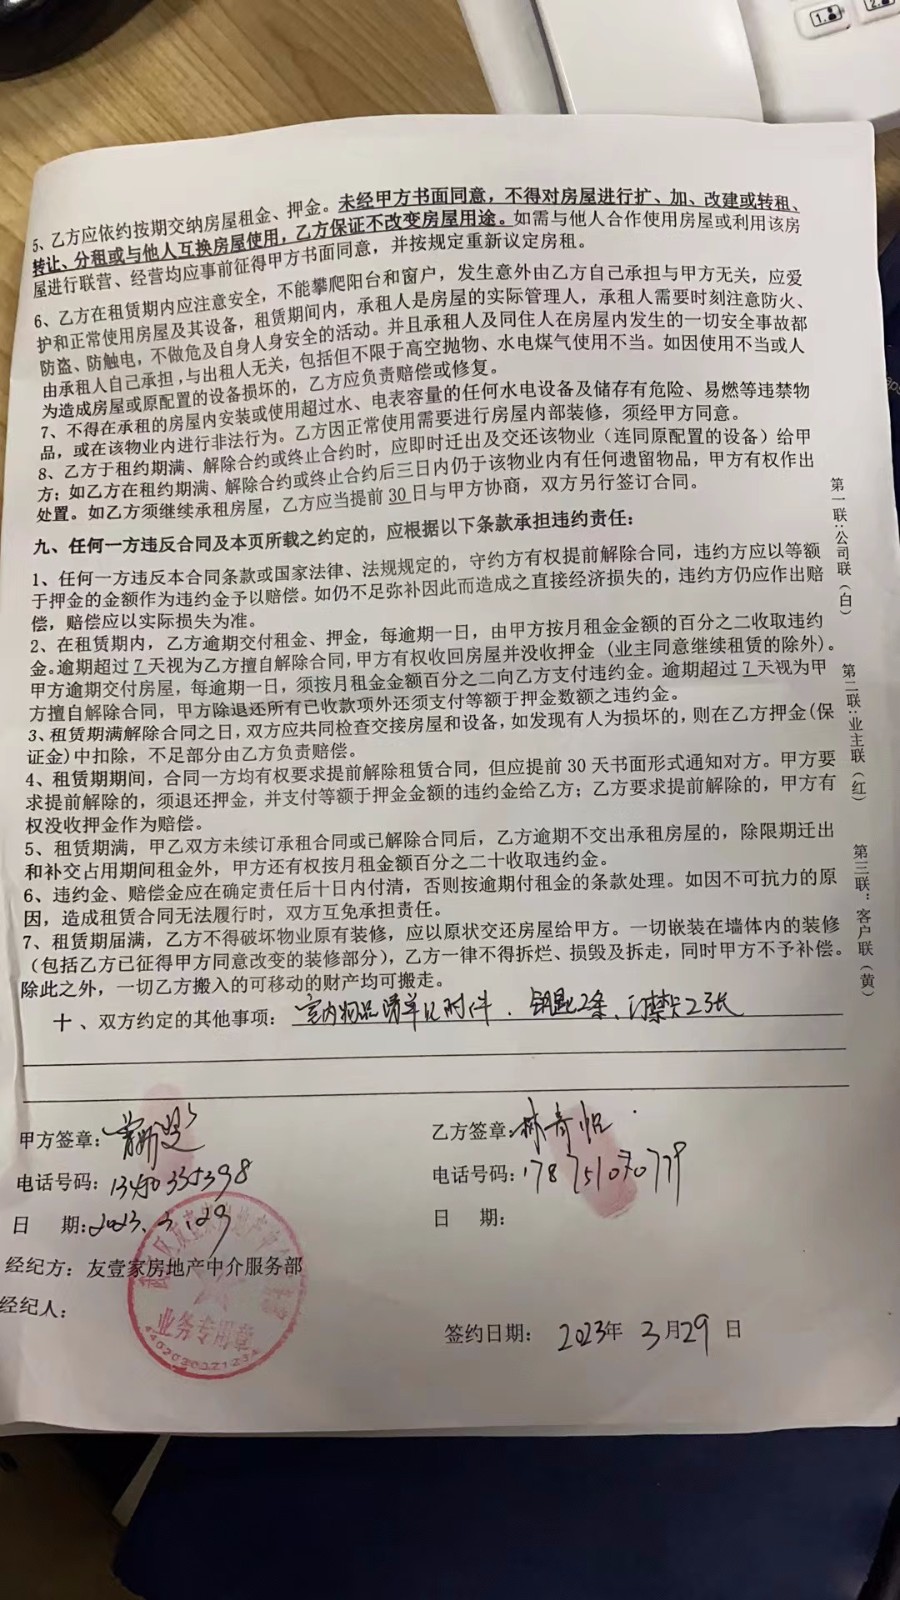 5、乙方应依约按期交纳房屋租金、押金。未经甲方书面同意，不得对房屋进行扩、加、改建或转租、
转让、分租或与他人互换房屋使用，乙方保证不改变房屋用途。如需与他人合作使用房屋或利用该房
屋进行联营、经营均应事前征得甲方书面同意，并按规定重新议定房租。
6、乙方在租赁期内应注意安全，不能攀爬阳台和窗户，发生意外由乙方自己承担与甲方无关，应爱
护和正常使用房屋及其设备，租赁期间内，承租人是房屋的实际管理人，承租人需要时刻注意防火、
防盗、防触电，不做危及自身人身安全的活动。并且承租人及同住人在房屋内发生的一切安全事故都
由承租人自己承担，与出租人无关，包括但不限于高空抛物、水电煤气使用不当。如因使用不当或人
为造成房屋或原配置的设备损坏的，乙方应负责赔偿或修复。
7、不得在承租的房屋内安装或使用超过水、电表容量的任何水电设备及储存有危险、易燃等违禁物
品，或在该物业内进行非法行为。乙方因正常使用需要进行房屋内部装修，须经甲方同意。
8、乙方于租约期满、解除合约或终止合约时，应即时迁出及交还该物业（连同原配置的设备）给甲
方；如乙方在租约期满、解除合约或终止合约后三日内仍于该物业内有任何遗留物品，甲方有权作出
处置。如乙方须继续承租房屋，乙方应当提前30日与甲方协商，双方另行签订合同。
九、任何一方违反合同及本页所载之约定的，应根据以下条款承担违约责任：
1、任何一方违反本合同条款或国家法律、法规规定的，守约方有权提前解除合同，违约方应以等额
于押金的金额作为违约金予以赔偿。如仍不足弥补因此而造成之直接经济损失的，违约方仍应作出赔
偿，赔偿应以实际损失为准。
2、在租赁期内，乙方逾期交付租金、押金，每逾期一日，由甲方按月租金金额的百分之二收取违约
金。逾期超过7天视为乙方擅自解除合同，甲方有权收回房屋并没收押金（业主同意继续租赁的除外）。
甲方逾期交付房屋，每逾期一日，须按月租金金额百分之二向乙方支付违约金。逾期超过7天视为甲
方擅自解除合同，甲方除退还所有已收款项外还须支付等额于押金数额之违约金。
3、租赁期满解除合同之日，双方应共同检查交接房屋和设备，如发现有人为损坏的，则在乙方押金(保
证金)中扣除，不足部分由乙方负责赔偿。
4、租赁期期间，合同一方均有权要求提前解除租赁合同，但应提前30天书面形式通知对方。甲方要
求提前解除的，须退还押金，并支付等额于押金金额的违约金给乙方；乙方要求提前解除的，甲方有
权没收押金作为赔偿。
5、租赁期满，甲乙双方未续订承租合同或已解除合同后，乙方逾期不交出承租房屋的，除限期迁出
和补交占用期间租金外，甲方还有权按月租金额百分之二十收取违约金。
6、违约金、赔偿金应在确定责任后十日内付清，否则按逾期付租金的条款处理。如因不可抗力的原
因，造成租赁合同无法履行时，双方互免承担责任。
7、租赁期届满，乙方不得破坏物业原有装修，应以原状交还房屋给甲方。一切嵌装在墙体内的装修
（包括乙方已征得甲方同意改变的装修部分），乙方一律不得拆烂、损毁及拆走，同时甲方不予补偿。
除此之外，一切乙方搬入的可移动的财产均可搬走。
十、双方约定的其他事项：室内物品清单见附件、钥匙2条、门禁卡23张
甲方签章：
电话号码：13450335398
日 期：2023.3.29
乙方签章：林奇怡
电话号码：17875107077
日 期：
经纪方：友壹家房地产中介服务部
经纪人：
业务专用章
签约日期：2023年3月29日
第一联：公司联（白） 第二联：业主联（红） 第三联：客户联（黄）